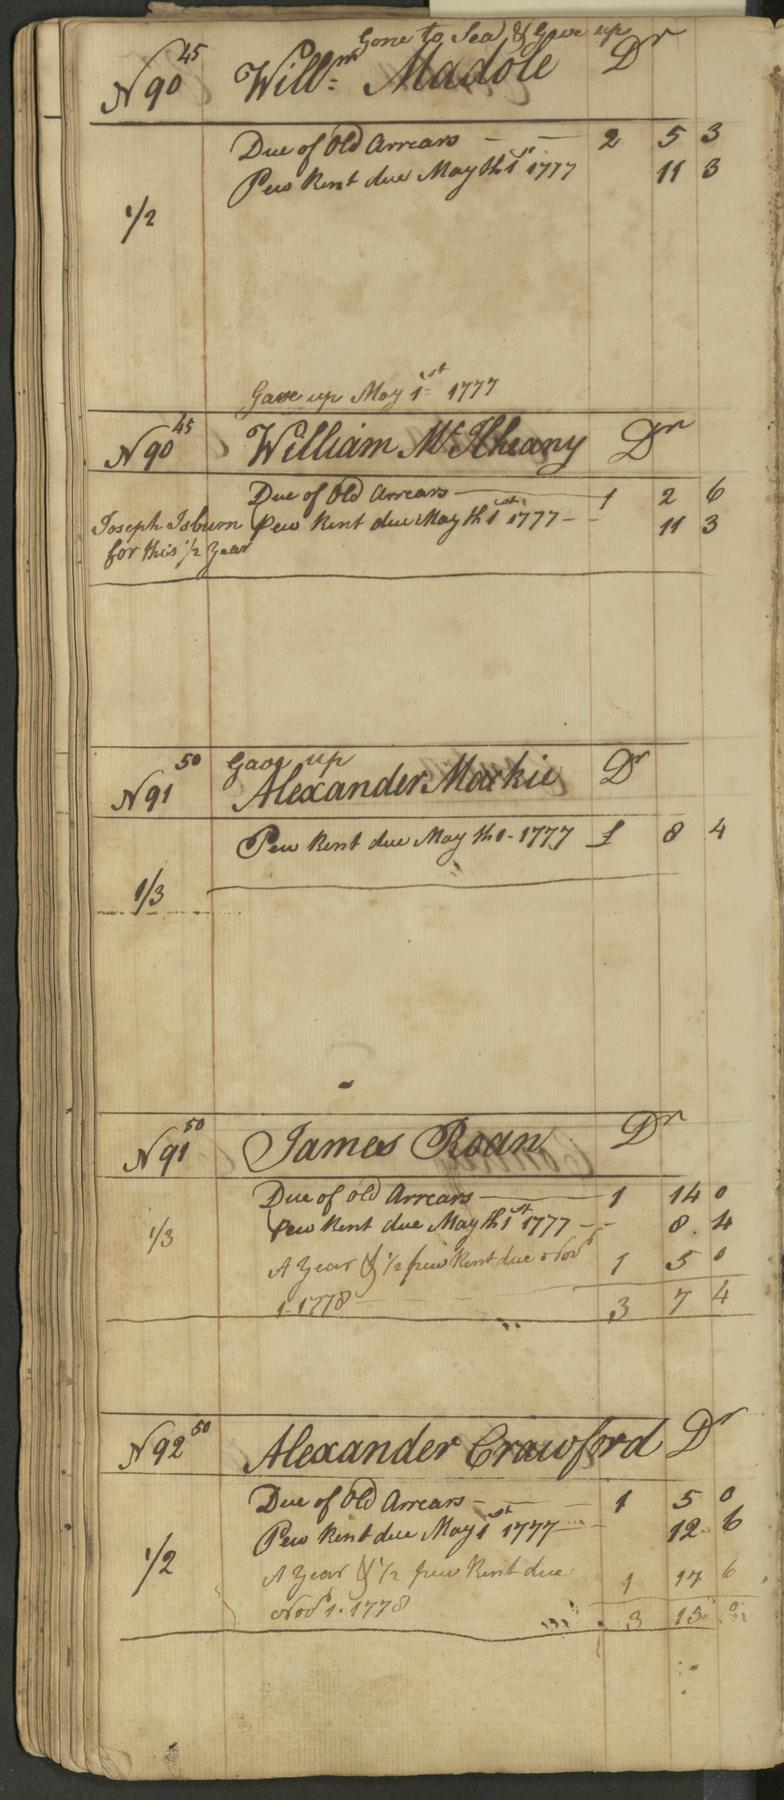 Gone to Sea & Gave up
N 90 45 Will.m Madole Dr
Due of Old Arrears — — 2 5 3
Pew Rent due May th 1st 1777 11 3
1/2
Gave up May 1st 1777
N 90 45 William Mc Ilheany Dr
Due of Old Arrears — 1 2 6
Joseph Isburn Pew Rent due May th 1st 1777 - - 11 3
for this 1/2 Year
Gave up
N 91 50 Alexander Markie Dr
Pew Rent due May th 1 - 1777 1 8 4
1/3
N 91 50 James Roan Dr
Due of old Arrears — 1 14 0
Pew Rent due May th 1st 1777 - - 8 4
1/3
A Year & 1/2 pew Rent due Novr 1 5 0
1 1778 — 3 7 4
N 92 50 Alexander Crawford Dr
Due of Old Arrears - — - 1 5 0
Pew Rent due May 1st 1777 — - 12 6
1/2
A Year & 1/2 pew Rent due 1 17 6
Novr 1. 1778 3 15 0